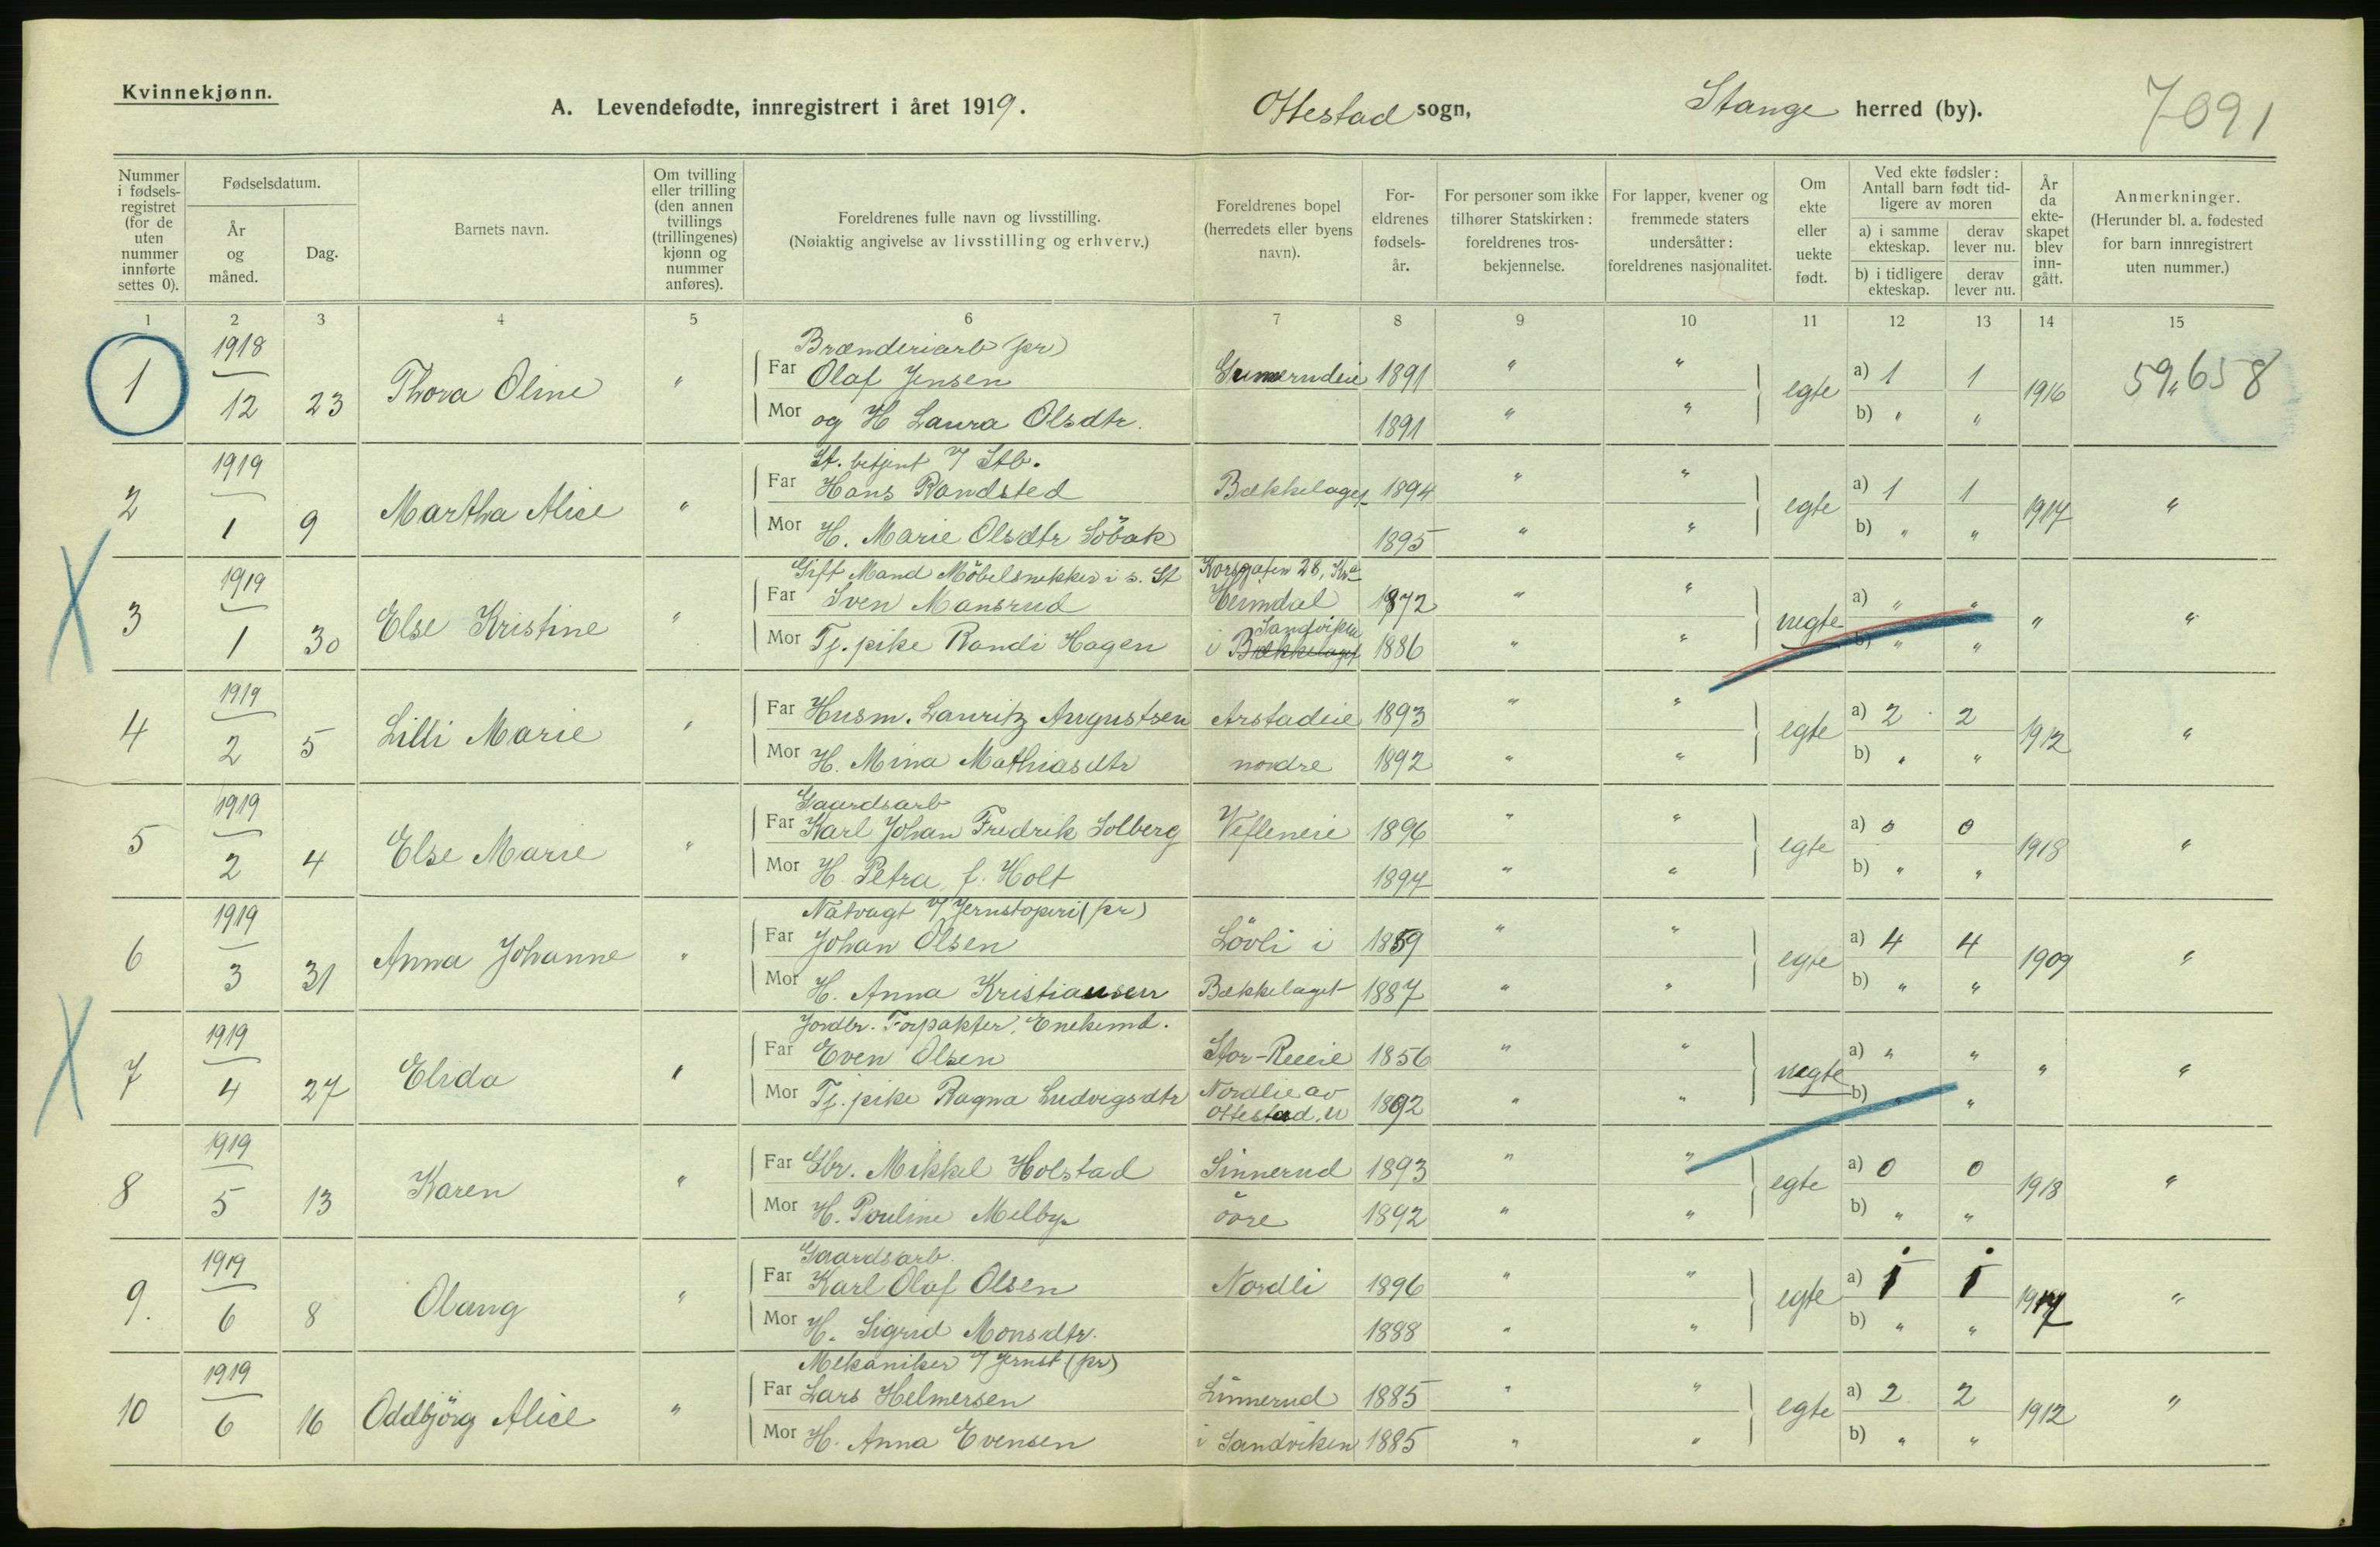 Kvinnekjønn.
A. Levendefødte, innregistrert i året 1919. Ottestad sogn, Stange herred (by). 7091
Nummer i fødselsregistret (for de uten nummer innførte settes 0).
Fødselsdatum.
År og måned.
Dag.
Barnets navn.
Om tvilling eller trilling (den annen tvillings (trillingenes) kjønn og nummer anføres).
Foreldrenes fulle navn og livsstilling.
(Nøiaktig angivelse av livsstilling og erhverv.)
Foreldrenes bopel (herredets eller byens navn).
Foreldrenes fødselsår.
For personer som ikke tilhører Statskirken: foreldrenes trosbekjennelse.
For lapper, kvener og fremmede staters undersåtter: foreldrenes nasjonalitet.
Om ekte eller uekte født.
Ved ekte fødsler: Antall barn født tidligere av moren
a) i samme ekteskap. derav lever nu.
b) i tidligere ekteskap. derav lever nu.
År da ekteskapet blev inngått.
Anmerkninger.
(Herunder bl. a. fødested for barn innregistrert uten nummer.)
1 2 3 4 5 6 7 8 9 10 11 12 13 14 15
1918 Brænderiarb (pr)
1 12 23 Thora Oline " Far Olaf Jensen 1891 " " egte a) 1 1 1916 59,658
Mor og H Laura Olsdtr. 1891 " " b) " "
1919 St. betjent v/ Stb.
2 1 9 Martha Alice " Far Hans Randsted Bækkelaget 1894 " " egte a) 1 1 1917 "
Mor H. Marie Olsdtr Söbak 1895 " " b) " "
1919 Gift Mand Möbelsnekker i s. St Korsgaten 28, Kr.a
3 1 30 Else Kristine " Far Sven Mansrud Heimdal 1872 " " uegte a) " " " "
Mor Tj. pike Randi Hagen i Bækkelaget Sandviken 1886 " " b) " "
1919
4 2 5 Lilli Marie " Far Husm. Lauritz Augustsen Arstadeie 1893 " " egte a) 2 2 1912 "
Mor H. Mina Mathiasdtr nordre 1892 " " b) " "
1919 Gaardsarb
5 2 4 Else Marie " Far Karl Johan Fredrik Solberg Vefleneie 1896 " " egte a) 0 0 1918 "
Mor H. Petra f. Holt 1897 " " b) " "
1919 Natvagt v/ Jernstøperi (pr)
6 3 31 Anna Johanne " Far Johan Olsen Lövli i 1889 " " egte a) 4 4 1909 "
Mor H. Anna Kristiansen Bækkelaget 1887 " " b) " "
1919 Jordbr. Forpakter. Enekemd.
7 4 27 Elida " Far Even Olsen Stor-Reeie 1856 " " uegte a) " " " "
Mor Tj. pike Ragna Ludvigsdtr Nordlie av Ottestad. 1892 " " b) " "
1919
8 5 13 Karen " Far Gbr. Mikkel Holstad Sinnerud 1893 " " egte a) 0 0 1918 "
Mor H. Pouline Melby övre 1892 " " b) " "
1919 Gaardsarb.
9. 6 8 Olaug " Far Karl Olaf Olsen Nordli 1896 " " egte a) 1 1 1917 "
Mor H. Sigrid Monsdtr. 1888 " " b) " "
1919 Mekaniker v/ Jernst (pr)
10 6 16 Oddbjörg Alice " Far Lars Helmersen Linnerud 1885 " " egte a) 2 2 1912 "
Mor H. Anna Evensen i Sandviken 1885 " " b) " "